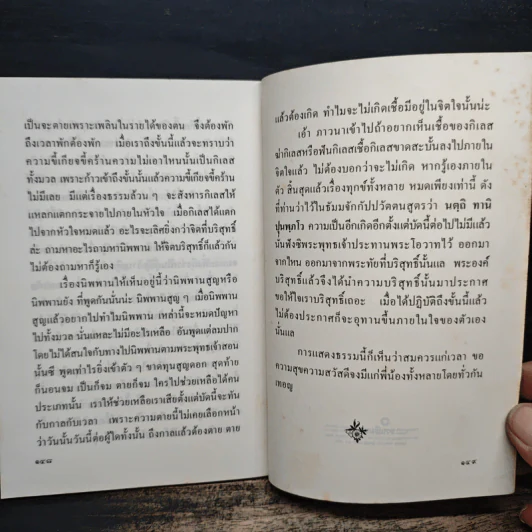 เป็นจะตายเพราะเพลินในรายได้ของตน จึงต้องพัก
ถึงเวลาพักต้องพัก เมื่อเราถึงขั้นนี้แล้วจะทราบว่า
ความขี้เกียจขี้คร้านความไม่เอาไหนนั้นเป็นกิเลส
ทั้งมวล เพราะก้าวเข้าถึงขั้นนั้นแล้วความขี้เกียจขี้คร้าน
ไม่มีเลย มีแต่เรื่องธรรมล้วน ๆ จะสังหารกิเลสให้
แหลกแตกกระจายไปภายในหัวใจ เมื่อกิเลสได้แตก
ไปจากหัวใจหมดแล้ว อะไรจะเลิศยิ่งกว่าจิตที่บริสุทธิ์
ล่ะ ถามหาอะไรถามหานิพพาน ให้จิตบริสุทธิ์ก็แล้วกัน
ไม่ต้องถามหาก็รู้เอง
เรื่องนิพพานให้เห็นอยู่นี้ว่านิพพานสูญหรือ
นิพพานยัง ที่พูดกันนั่นน่ะ นิพพานสูญ ๆ เมื่อนิพพาน
สูญแล้วอยากไปทำไมนิพพาน เหล่านี้จะหมดปัญหา
ไปทั้งมวล นั่นแหละไม่มีอะไรเหลือ อันพูดแต่ลมปาก
โดยไม่ได้สนใจกับทางไปนิพพานตามพระพุทธเจ้าสอน
นั้นซี พูดเท่าไรยิ่งเข้าตัว ๆ ขาดทุนสูญดอก สุดท้าย
ก็นอนจม เป็นก็จม ตายก็จม ใครไปช่วยเหลือได้คน
ประเภทนั้น เราให้ช่วยเหลือเราเสียตั้งแต่บัดนี้จะทัน
กับกาลกับเวลา เพราะความตายนี้ไม่เคยเลือกหน้า
ว่าวันนั้นวันนี้ต่อผู้ใดทั้งนั้น ถึงกาลแล้วต้องตาย ตาย
๑๔๘
แล้วต้องเกิด ทำไมจะไม่เกิดเชื้อมีอยู่ในจิตใจนั้นน่ะ
เอ้า ภาวนาเข้าไปถ้าอยากเห็นเชื้อของกิเลส
ฆ่ากิเลสหรือฟันกิเลสเชื้อกิเลสขาดสะบั้นลงไปภายใน
จิตใจแล้ว ไม่ต้องบอกว่าจะไม่เกิด หากรู้เองภายใน
ตัว สิ้นสุดแล้วเรื่องทุกข์ทั้งหลาย หมดเพียงเท่านี้ ดัง
ที่ท่านว่าไว้ในธัมมจักกัปปวัตตนสูตรว่า นตฺถิ ทานิ
ปุนพฺภโว ความเป็นอีกเกิดอีกตั้งแต่บัดนี้ต่อไปไม่มีแล้ว
นั่นฟังซิพระพุทธเจ้าประทานพระโอวาทไว้ ออกมา
จากไหน ออกมาจากพระทัยที่บริสุทธิ์นั้นแล พระองค์
บริสุทธิ์แล้วจึงได้นำความบริสุทธิ์นั้นมาประกาศ
ขอให้ใจเราบริสุทธิ์เถอะ เมื่อได้ปฏิบัติถึงขั้นนี้แล้ว
ไม่ต้องประกาศก็จะอุทานขึ้นภายในใจของตัวเอง
นั่นแล
การแสดงธรรมนี้ก็เห็นว่าสมควรแก่เวลา ขอ
ความสุขความสวัสดีจงมีแก่พี่น้องทั้งหลายโดยทั่วกัน
เทอญ
๑๔๙